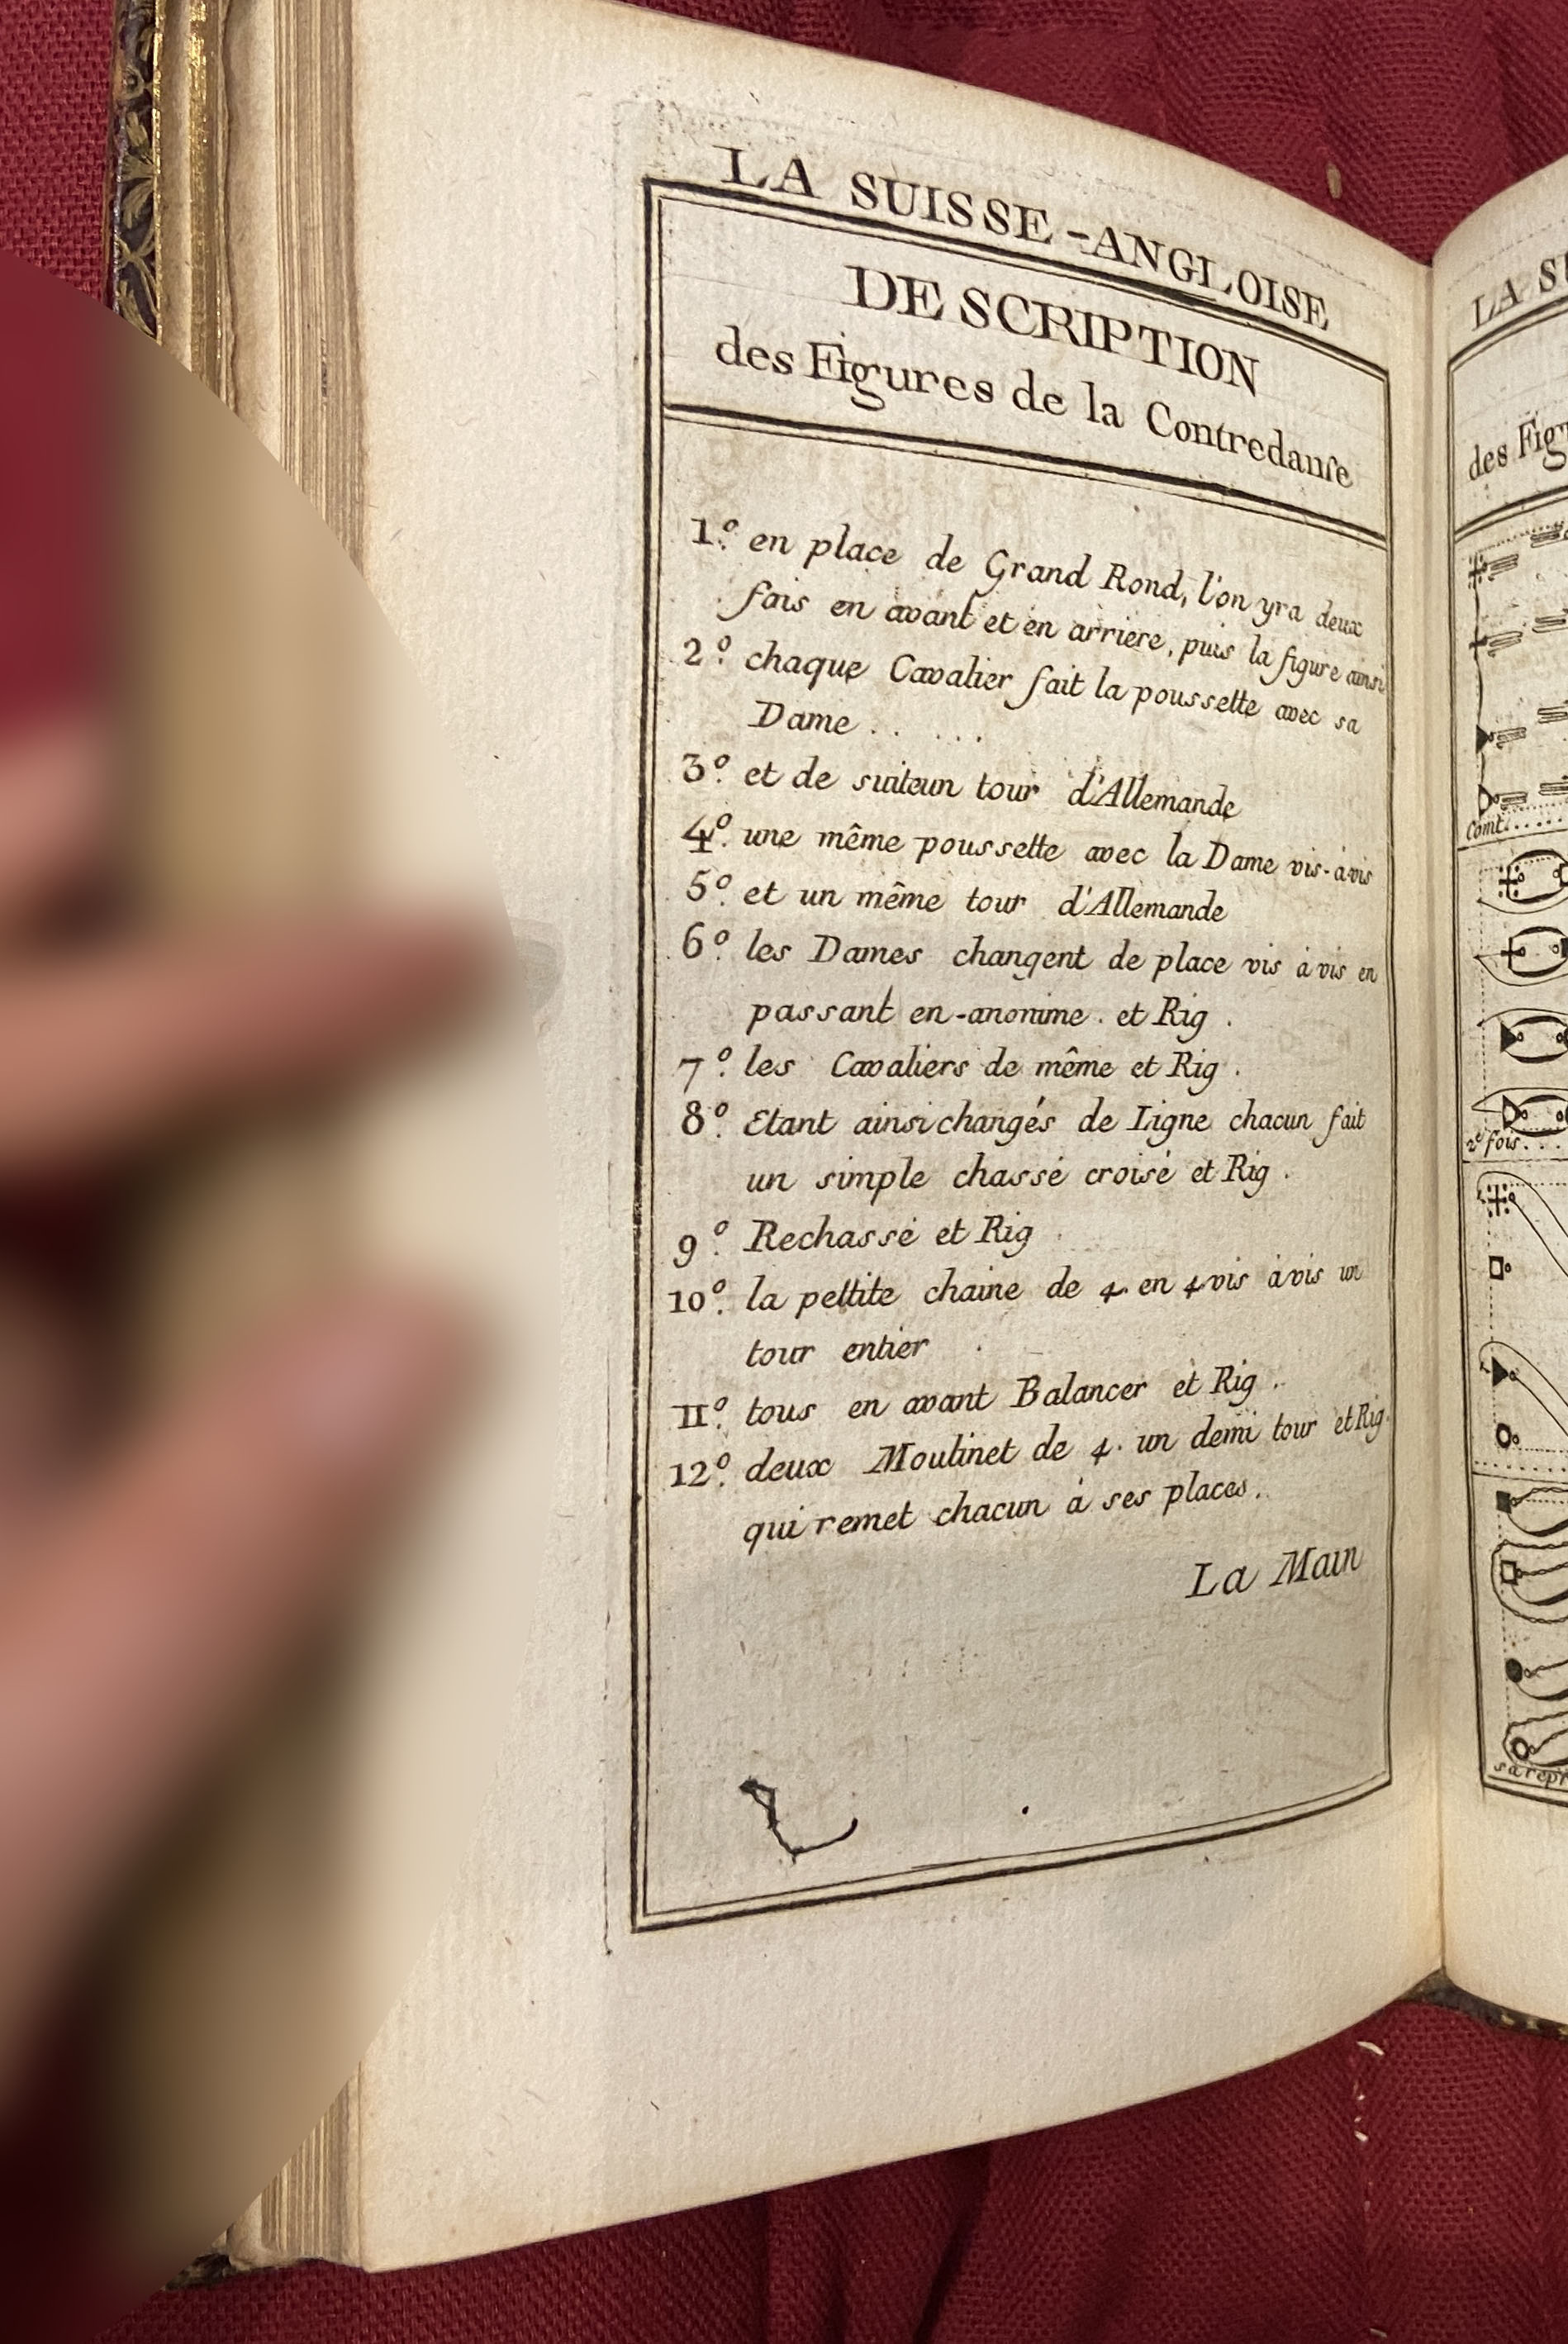 LA SUISSE-ANGLOISE
DESCRIPTION
des Figures de la Contredanſe
1.º en place de Grand Rond, l'on yra deux
fois en avant et en arriere, puis la figure ainsi
2.º chaque Cavalier fait la poussette avec sa
Dame . . . . .
3.º et de suite un tour d'Allemande
4.º une même poussette avec la Dame vis-à vis
5.º et un même tour d'Allemande
6.º les Dames changent de place vis à vis en
passant en-anonime. et Rig .
7.º les Cavaliers de même et Rig .
8.º Etant ainsi changés de Ligne chacun fait
un simple chassé croisé et Rig .
9.º Rechassé et Rig
10.º la pettite chaine de 4. en 4 vis à vis un
tour entier .
II.º tous en avant Balancer et Rig .
12.º deux Moulinet de 4. un demi tour et Rig.
qui remet chacun à ses places.
La Main
LA S
des Fig
Cont.....
2.e fois...
sa repr